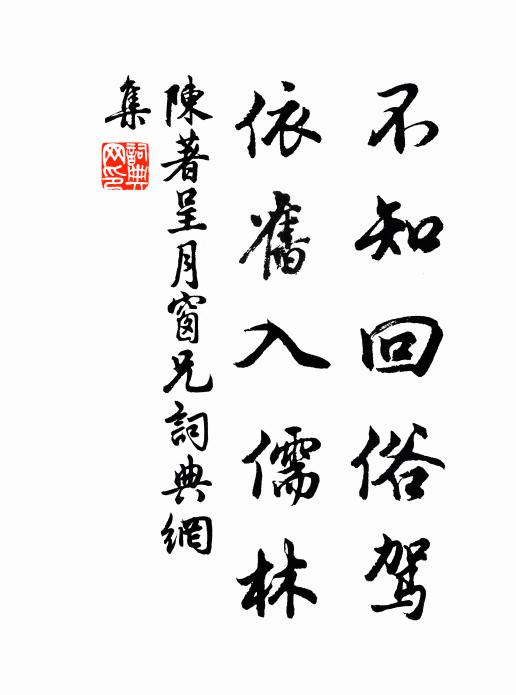 不知回俗驾
依舊入儒林
陳著呈月窗兄詞典網
集
詞典
网印